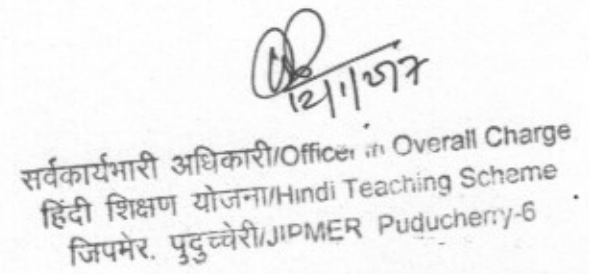 12/1/2017
सर्वकार्यभारी अधिकारी/Officer in Overall Charge
हिंदी शिक्षण योजना/Hindi Teaching Scheme
जिपमेर. पुदुच्चेरी/JIPMER Puducherry-6